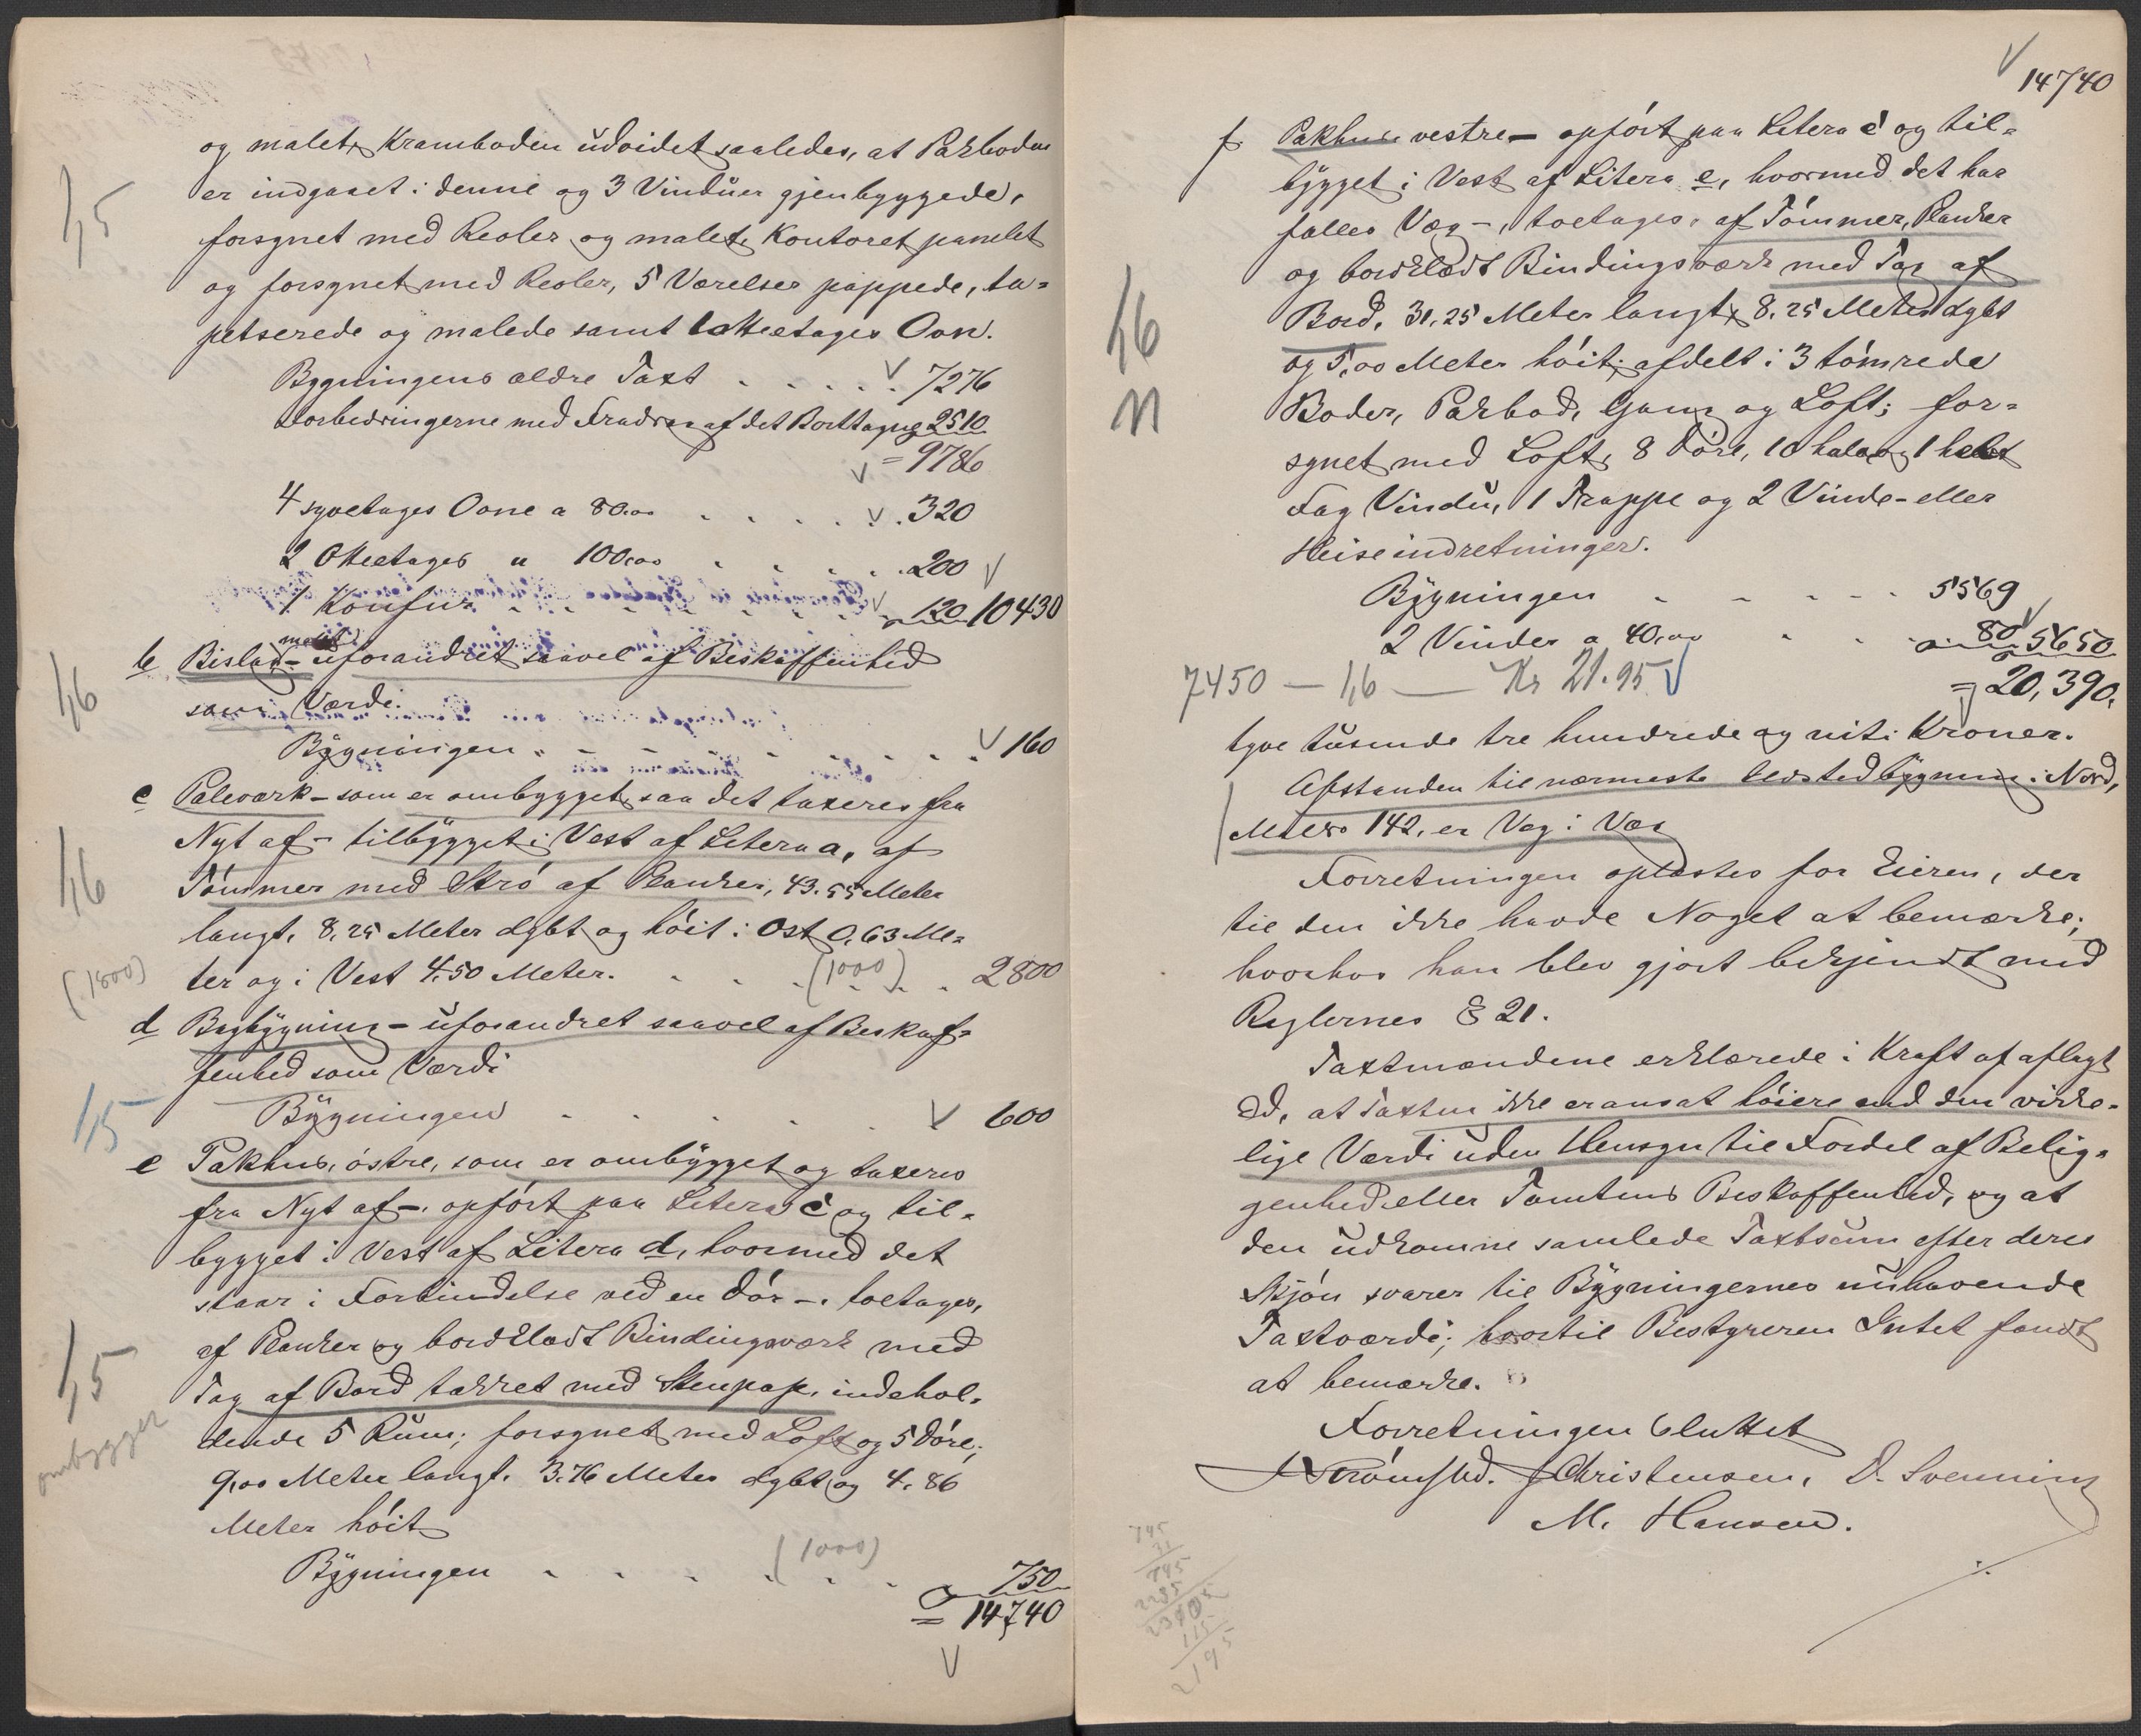 og malet, Kramboden udvidet saaledes, at Pakboden
er indgaaet i denne og 3 Vinduer gjenbyggede,
forsynet med Reoler og malet, Kontoret panelet
og forsynet med Reoler, 5 Værelser pappede, ta-
petserede og malede samt 1 otteetages Ovn.
Bygningens ældre Taxt . . . . . 7276
Forbedringerne med Fradrag af det Borttagne 2510
= 9786
4 syvetages Ovne a 80.00 . . . . . 320
2 Otteetages " 100.00 . . . . . 200
1 Komfur . . . . . . 120 10430
b Bislag - uforandret saavel af Beskaffenhed
som Værdi.
Bygningen . . . . . . . . 160
c Palværk - som er ombygget, saa det taxeres fra
Nyt af - tilbygget i Vest af Litera a, af
Tömmer med Strö af Planker, 43.55 Meter
langt, 8,25 Meter dybt og höit i Ost 0,63 Me-
ter og i Vest 4.50 Meter. . . . (1000) . . 2800
d Bagbygning - uforandret saavel af Beskaf-
fenhed som Værdi
Bygningen . . . . . 600
e Pakhus, östre, som er ombygget og taxeres
fra Nyt af -, opfört paa Litera c og til-
bygget i Vest af Litera d, hvormed det
staar i Forbindelse ved en Dör -, toetages,
af Planker og bordklædt Bindingsværk med
Tag af Bord tækket med Stenpap, indehol-
dende 5 Rum; forsynet med Loft og 5 Döre,
9,00 Meter langt, 3.76 Meter dybt og 4.86
Meter höit
Bygningen . . . . (1000) . . 750
= 14740
1,5
1,6
1,6
(1800)
1,5
1,5
ombygget
14740
f. Pakhus vestre - opfört paa Litera c og til-
bygget i Vest af Litera e, hvormed det har
fælles Væg -, toetages, af Tömmer, Planker
og bordklædt Bindingsværk med Tag af
Bord, 31,25 Meter langt, 8,25 Meter dybt
og 5,00 Meter höit; afdelt i 3 tömrede
Boder, Pakbod, Gang og Loft; for-
synet med Loft, 8 Döre, 10 halve og 1 helt
Fag Vindu, 1 Trappe og 2 Vinde- eller
Heiseindretninger.
Bygningen . . . . . 5569
2 Vinder a 40,00 . . . 80 5650
7450 — 1,6 — Kr 21.95
= 20,390.
tyve tusinde tre hundrede og niti Kroner.
Afstanden til nærmeste Ildstedbygning i Nord,
Matr 142, er Væg i Væg
Forretningen oplæstes for Eieren, der
til den ikke havde Noget at bemærke;
hvorhos han blev gjort bekjendt med
Reglernes § 21.
Taxtmændene erklærede i Kraft af aflagt
Ed, at Taxten ikke er ansat höiere end den virke-
lige Værdi uden Hensyn til Fordel af Belig-
genhed eller Tomtens Beskaffenhed, og at
den udkomne samlede Taxtsum efter deres
Skjön svarer til Bygningernes nuhavende
Taxtværdi; hvortil Bestyreren Intet fandt
at bemærke.
Forretningen sluttet
Christensen, D. Svenning
M. Hansen.
1,6
N
745